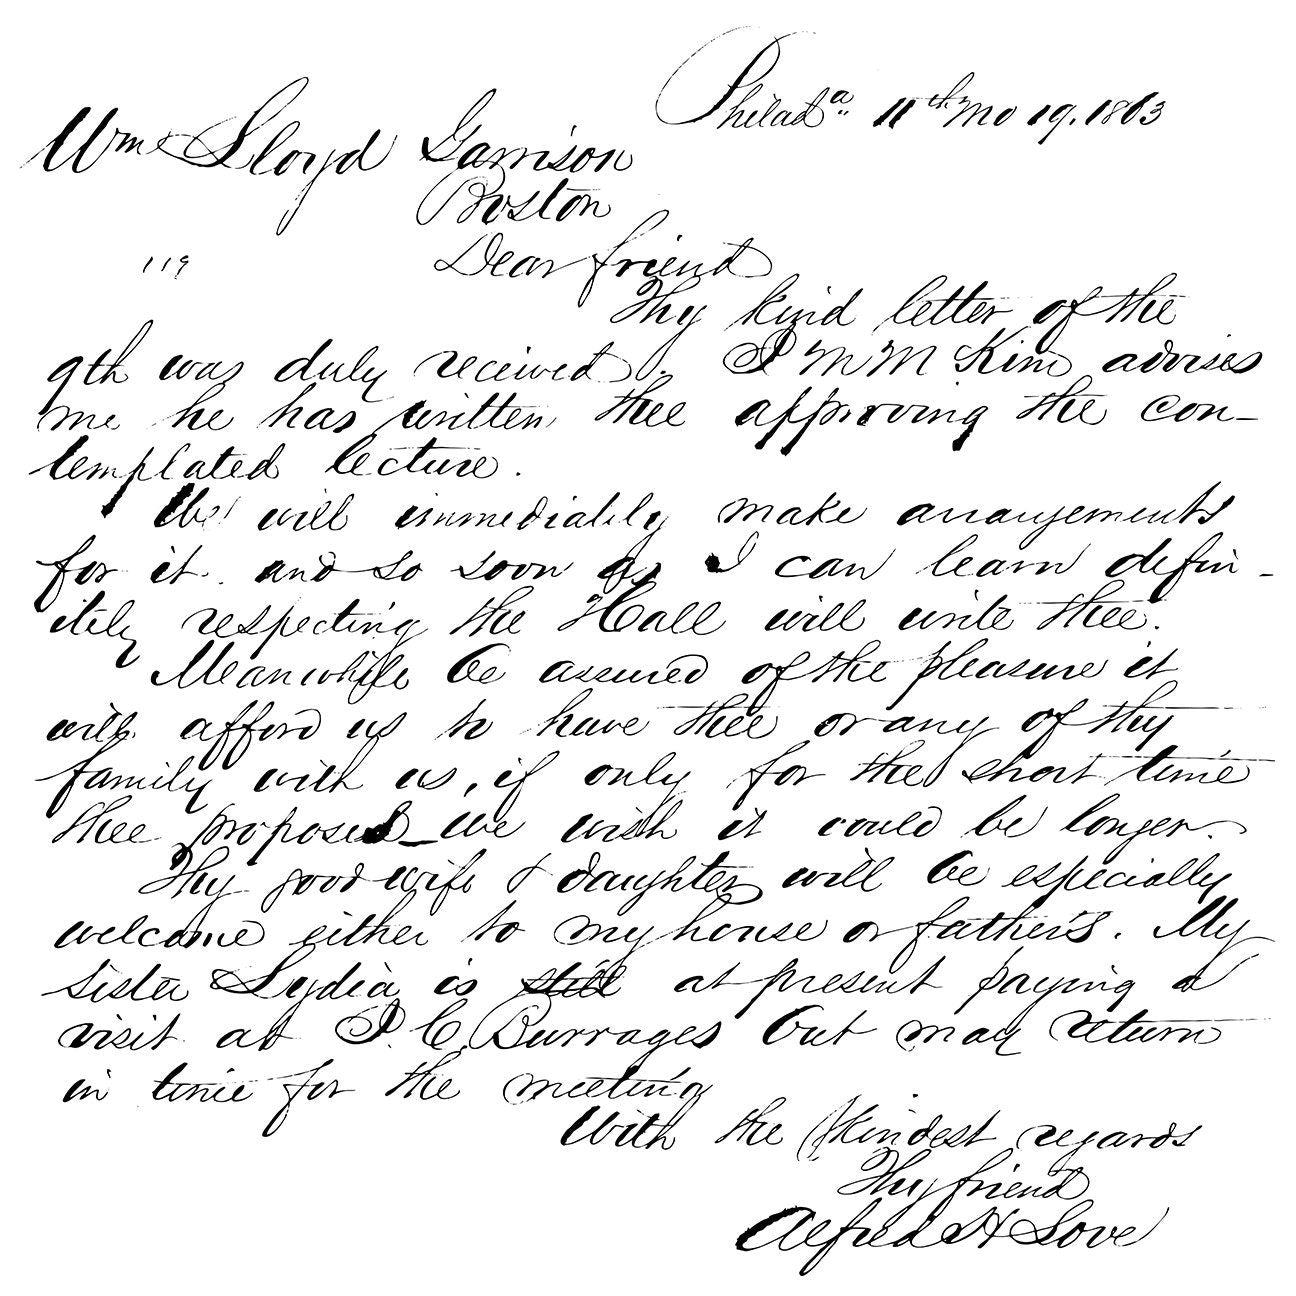 Philad.a 11th Mo 19. 1863
Wm Lloyd Garrison
Boston
119
Dear friend
Thy kind letter of the
9th was duly received. J M McKim advises
me he has written thee approving the con-
templated lecture.
We will immediately make arrangements
for it. and so soon as I can learn defin-
itely respecting the Hall will write thee.
Meanwhile be assured of the pleasure it
will afford us to have thee or any of thy
family with us, if only for the short time
thee proposed_we wish it could be longer.
Thy good wife & daughter will be especially
welcome either to my house or father's. My
sister Lydia is still at present paying a
visit at J. C. Burrages but may return
in time for the meeting
With the kindest regards
Thy friend
Alfred H Love